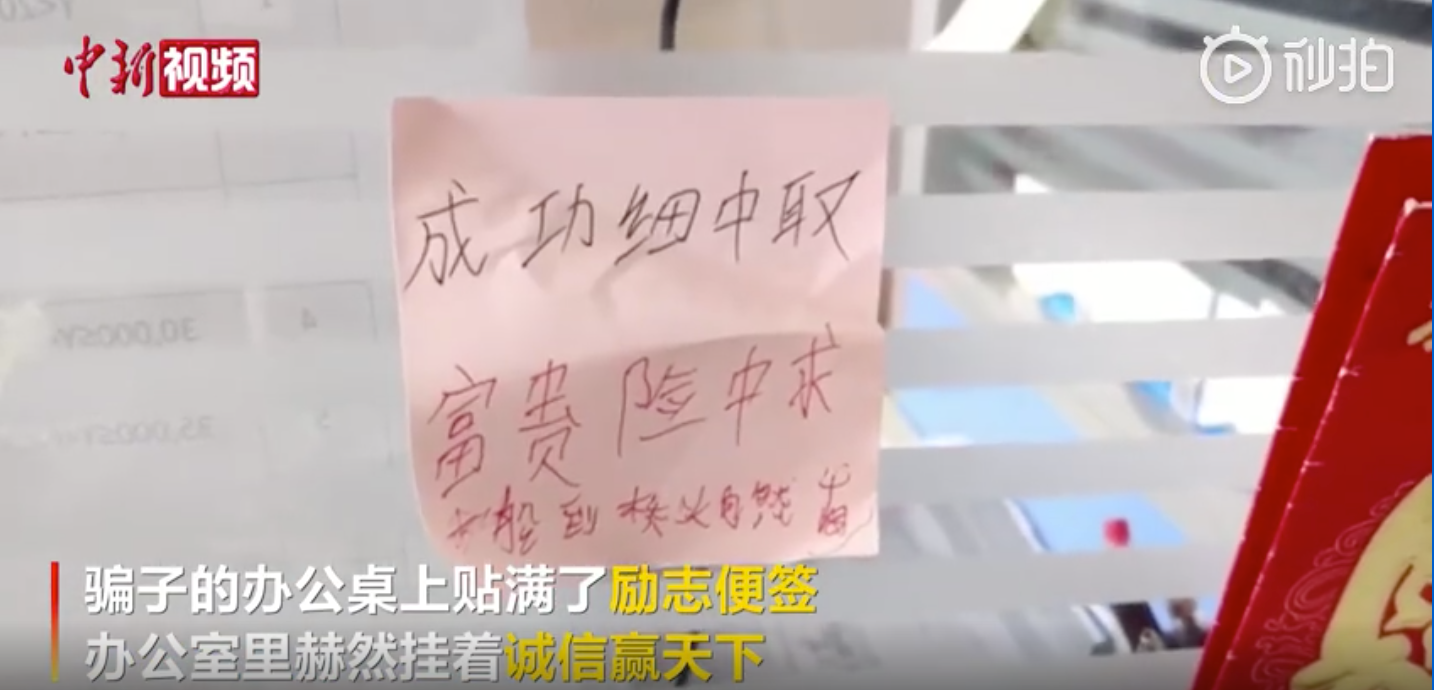 中新视频
秒拍
成功细中取
富贵险中求
船到桥头自然直
骗子的办公桌上贴满了励志便签
办公室里赫然挂着诚信赢天下